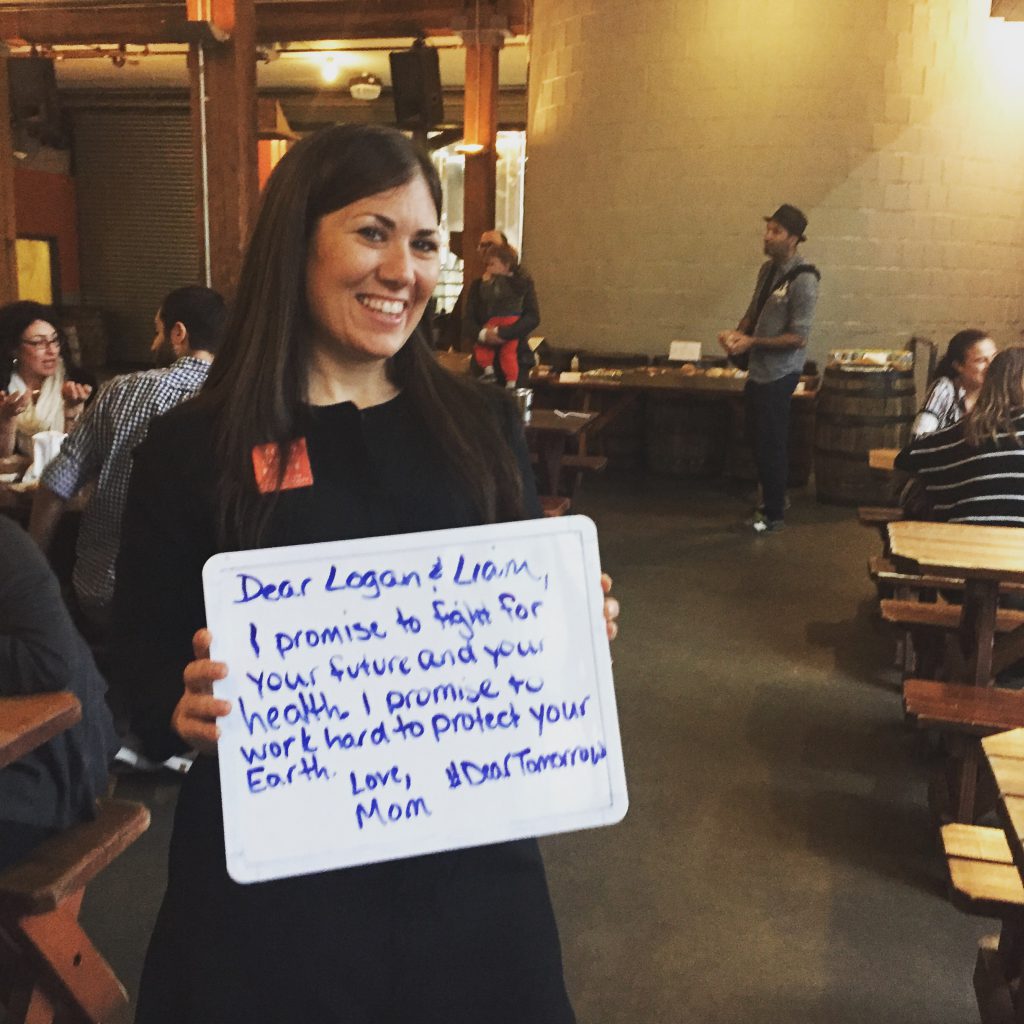 Dear Logan & Liam,
I promise to fight for
your future and your
health. I promise to
work hard to protect your
Earth.
Love, #DearTomorrow
Mom